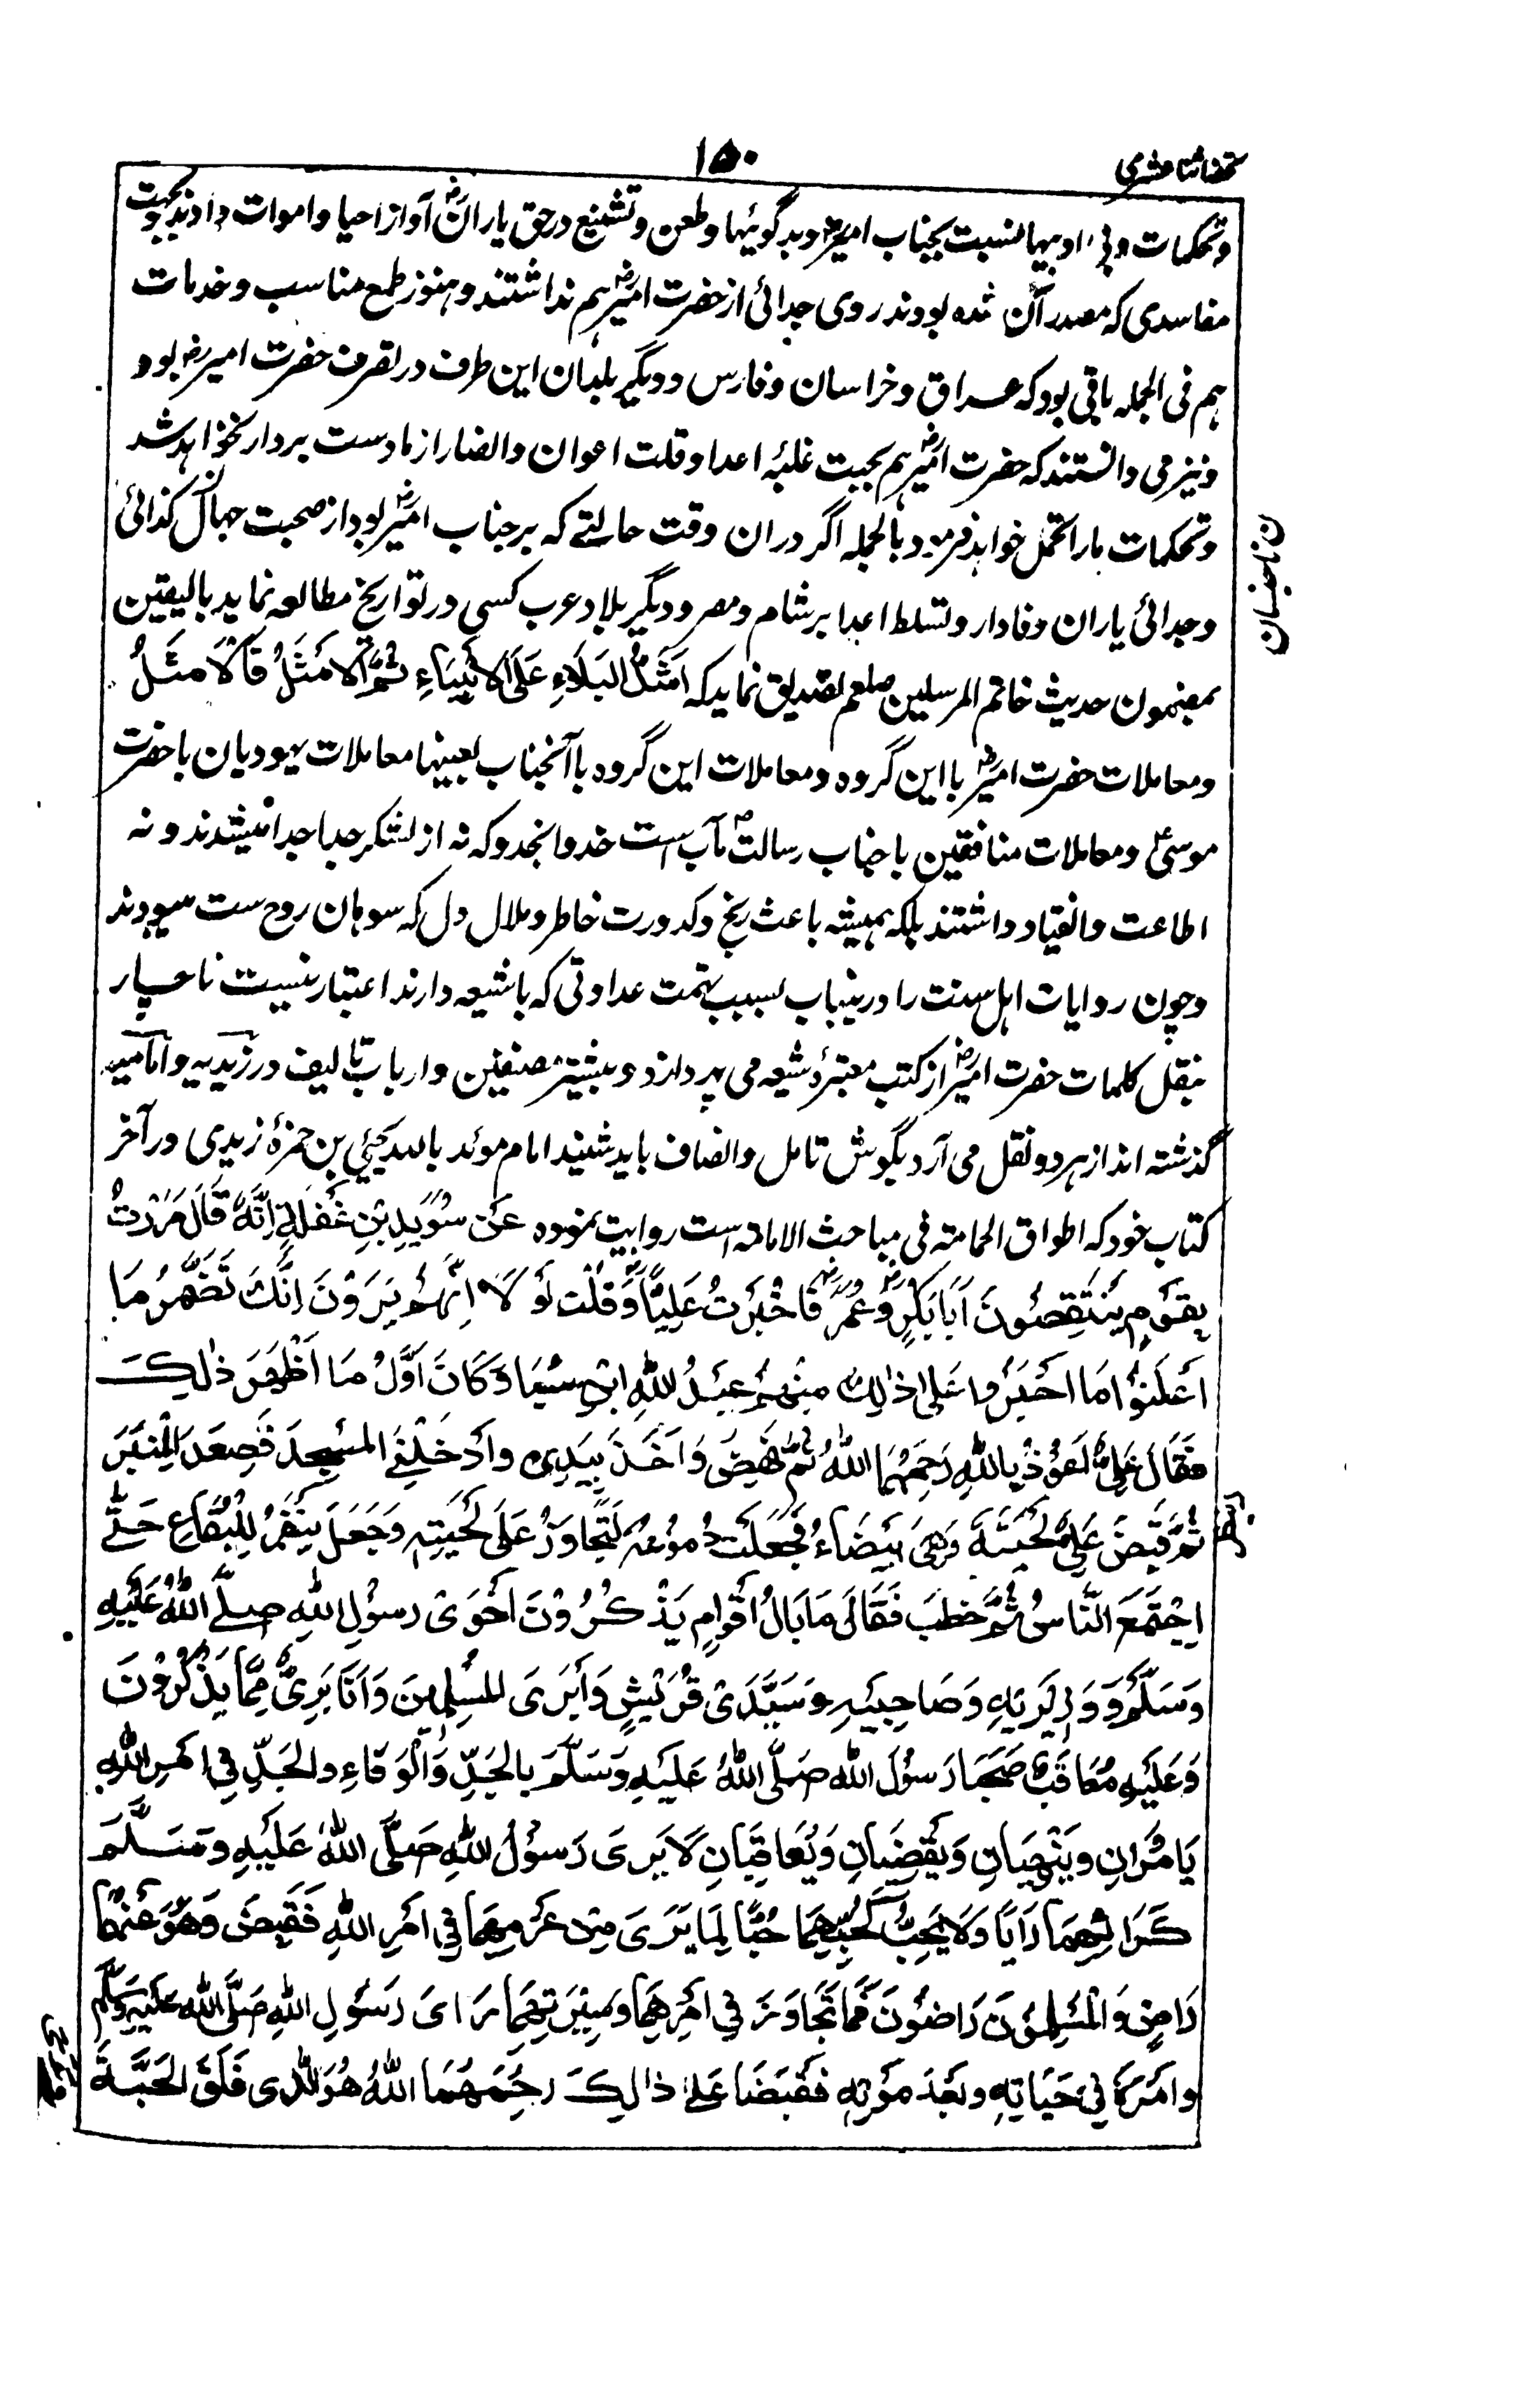 تحفہ اثنا عشری
۱۵۰
وتحکمات وبی ادبیہا نسبت بجناب امیررض وبدگوئیہا وطعن وتشنیع در حق یاران رض آواز احیا واموات دادند بجهت
مفاسدی کہ مصدر آن شدہ بودند روی جدائی از حضرت امیررض ہم نداشتند وہنوز طمع مناسب وخدمات
ہم فی الجملہ باقی بود کہ عراق وخراسان وفارس ودیگر بلدان این طرف در تصرف حضرت امیررض بود
ونیز می دانستند کہ حضرت امیررض ہم بجہت غلبۂ اعدا وقلت اعوان وانصار از ما دست بردار نخواہد شد
وتحکمات ما را تحمل خواہد فرمود بالجملہ اگر دران وقت حالتے کہ بر جناب امیررض بود از صحبت جہال کذائی
وجدائی یاران وفادار وتسلط اعدا بر شام ومصر ودیگر بلاد عرب کسی در تواریخ مطالعہ نماید بالیقین
بمضمون حدیث خاتم المرسلین صلعم تصدیق نماید کہ اَشَدُّ البَلَاءِ عَلَی الاَنْبِیَاءِ ثُمَّ الاَمْثَلُ فَالْاَمْثَلُ
ومعاملات حضرت امیررض با این گروہ ومعاملات این گروہ با آنجناب بعینہا معاملات یہودیان با حضرت
موسیٰؑ ومعاملات منافقین با جناب رسالتؐ مآب است خذوا بخذو کہ نہ از لشکر جدا جدا میشدند ونہ
اطاعت وانقیاد داشتند بلکہ ہمیشہ باعث رنج وکدورت خاطر وملال دل کہ سوہان روح ست میبودند
وچون روایات اہل سنت را درینباب بسبب تہمت عداوتی کہ با شیعہ دارند اعتبار نیست ناچار
نبقل کلمات حضرت امیررض از کتب معتبرۂ شیعہ می پردازد وبیشتر مصنفین وارباب تالیف در زیدیہ وامامیہ
گذشتہ اند از ہر دو نقل می آرد بگوش تامل وانصاف باید شنید امام موئد باللہ یحیی بن حمزۂ زیدی در آخر
کتاب خود کہ اطواق الحمامتہ فی مباحث الامامتہ است روایت نمودہ عَنْ سُوَیدِ بْنِ غَفَلَةِ اِنَّهٗ قَالَ مَرَرْتُ
بِقَوْمٍ یَنْتَقِصُوْنَ اَبَا بَکْرٍرض وَعُمَرَرض فَاَخْبَرْتُ عَلِیًّارض وَقُلْتُ لَوْ لَا اِنَّهُمْ یَرَوْنَ اِنَّکَ تَضْمُرُ مَا
اَعْلَنُوْا مَا اجْتَرَءُوا عَلیٰ ذٰلِكَ مِنْهُمْ عَبْدُ اللهِ ابْنُ سَبَا وَکَانَ اَوَّلَ مَا اَظْهَرَ ذٰلِكَ
فَقَالَ عَلِیٌّ نَعُوْذُ بِاللهِ رَحِمَهُمَا اللهُ ثُمَّ نَهَضَ وَاَخَذَ بِیَدِیْ وَاَدْخَلَنِیْ المَسْجِدَ فَصَعِدَ المِنْبَرَ
ثُمَّ قَبَضَ عَلیٰ لِحْیَتِهٖ وَهِیَ بَیْضَاءُ فَجَعَلَتْ دُمُوْعُهٗ تَتَجَاوَرُ عَلیٰ لِحْیَتِهٖ وَجَعَلَ یَنْظُرُ لِلْبِقَاعِ حَتّٰی
اِجْتَمَعَ النَّاسُ ثُمَّ خَطَبَ فَقَالَ مَا بَالُ اَقْوَامٍ یَذْکُرُوْنَ اَخَوَیْ رَسُوْلِ اللهِ صلَّی اللهُ عَلَیْهِ
وَسَلَّمَ وَوَزِیْرَیْهِ وَصَاحِبَیْهِ وَسَیِّدَیْ قُرَیْشٍ وَاَبَوَیِ المُسْلِمِیْنَ وَاَنَا بَرِیْءٌ مِمَّا یَذْکُرُوْنَ
وَعَلَیْهِ مُعَاقِبٌ صَحِبَا رَسُوْلَ اللهِ صَلَّی اللهُ عَلَیْهِ وَسَلَّمَ بِالجِدِّ وَالْوَفَاءِ والجِدِّ فِیْ اَمْرِ اللهِ
یَامُرَانِ وَیَنْهَیَانِ وَیَقْضِیَانِ وَیُعَاقِبَانِ لَا یَرَی رَسُوْلُ اللهِ صَلَّی اللهُ عَلَیْهِ وَسَلَّمَ
کَرَایِهِمَا رَایًا وَلَا یُحِبُّ کَحُبِّهِمَا حُبًّا لِمَا یَرَی مِنْ عَزْمِهِمَا فِیْ اَمْرِ اللهِ فَقُبِضَ وَهُوَ عَنْهُمَا
رَاضٍ وَالْمُسْلِمُوْنَ رَاضُوْنَ فَمَا تَجَاوَزَ فِیْ اَمْرِهِمَا وَسِیْرَتِهِمَا رَایَ رَسُوْلِ اللهِ صَلَّی اللهُ عَلَیْهِ وَسَلَّمَ
وَاَمْرَهٗ فِیْ حَیَاتِهٖ وَبَعْدَ مَوْتِهٖ فَقُبِضَا عَلیٰ ذَالِكَ رَحِمَهُمَا اللهُ فَوَالَّذِی فَلَقَ الحَبَّةَ